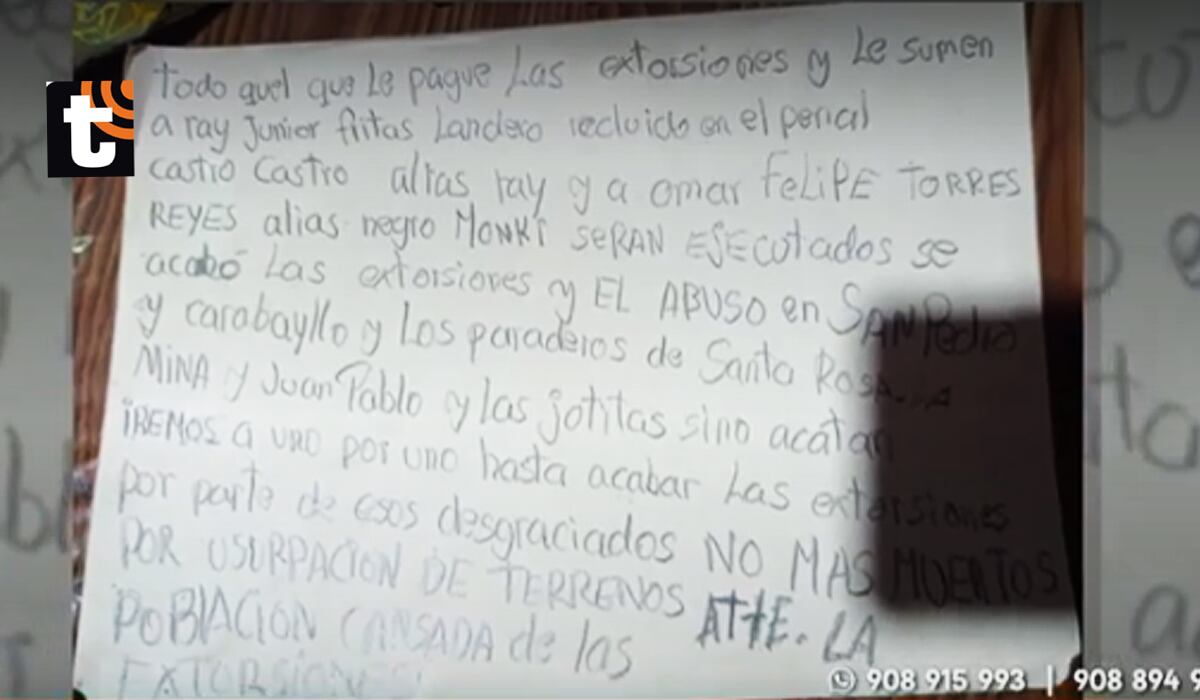 todo quel que le pague Las extorsiones y Le sumen
a ray Junior fritas Landero recluido en el penal
castro Castro alias ray y a omar feLiPE TORRES
REYES alias negro MONKI SERAN ESECUtados se
acabó Las extorsiones y EL ABUSO en SAN Pedro
y carabayllo y Los paraderos de Santa Rosa
MINA y Juan Pablo y las jotitas sino acatan
iREMOS a uno por uno hasta acabar Las extorsiones
por parte de esos desgraciados NO MAS MUERTOS
POR USURPACION DE TERRENOS Atte. LA
POBlACION CANSADA de las
EXTORSIONES
t
908 915 993 | 908 894 9